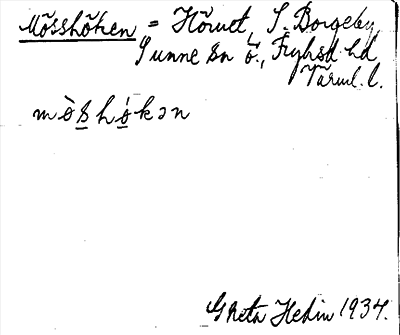 Mösshöken = Höruet, S. Borgeby,
Sunne sn ö., Fryksd. hd
Värml. l.
mòs̲hó̲kən
Greta Hedin 1934.